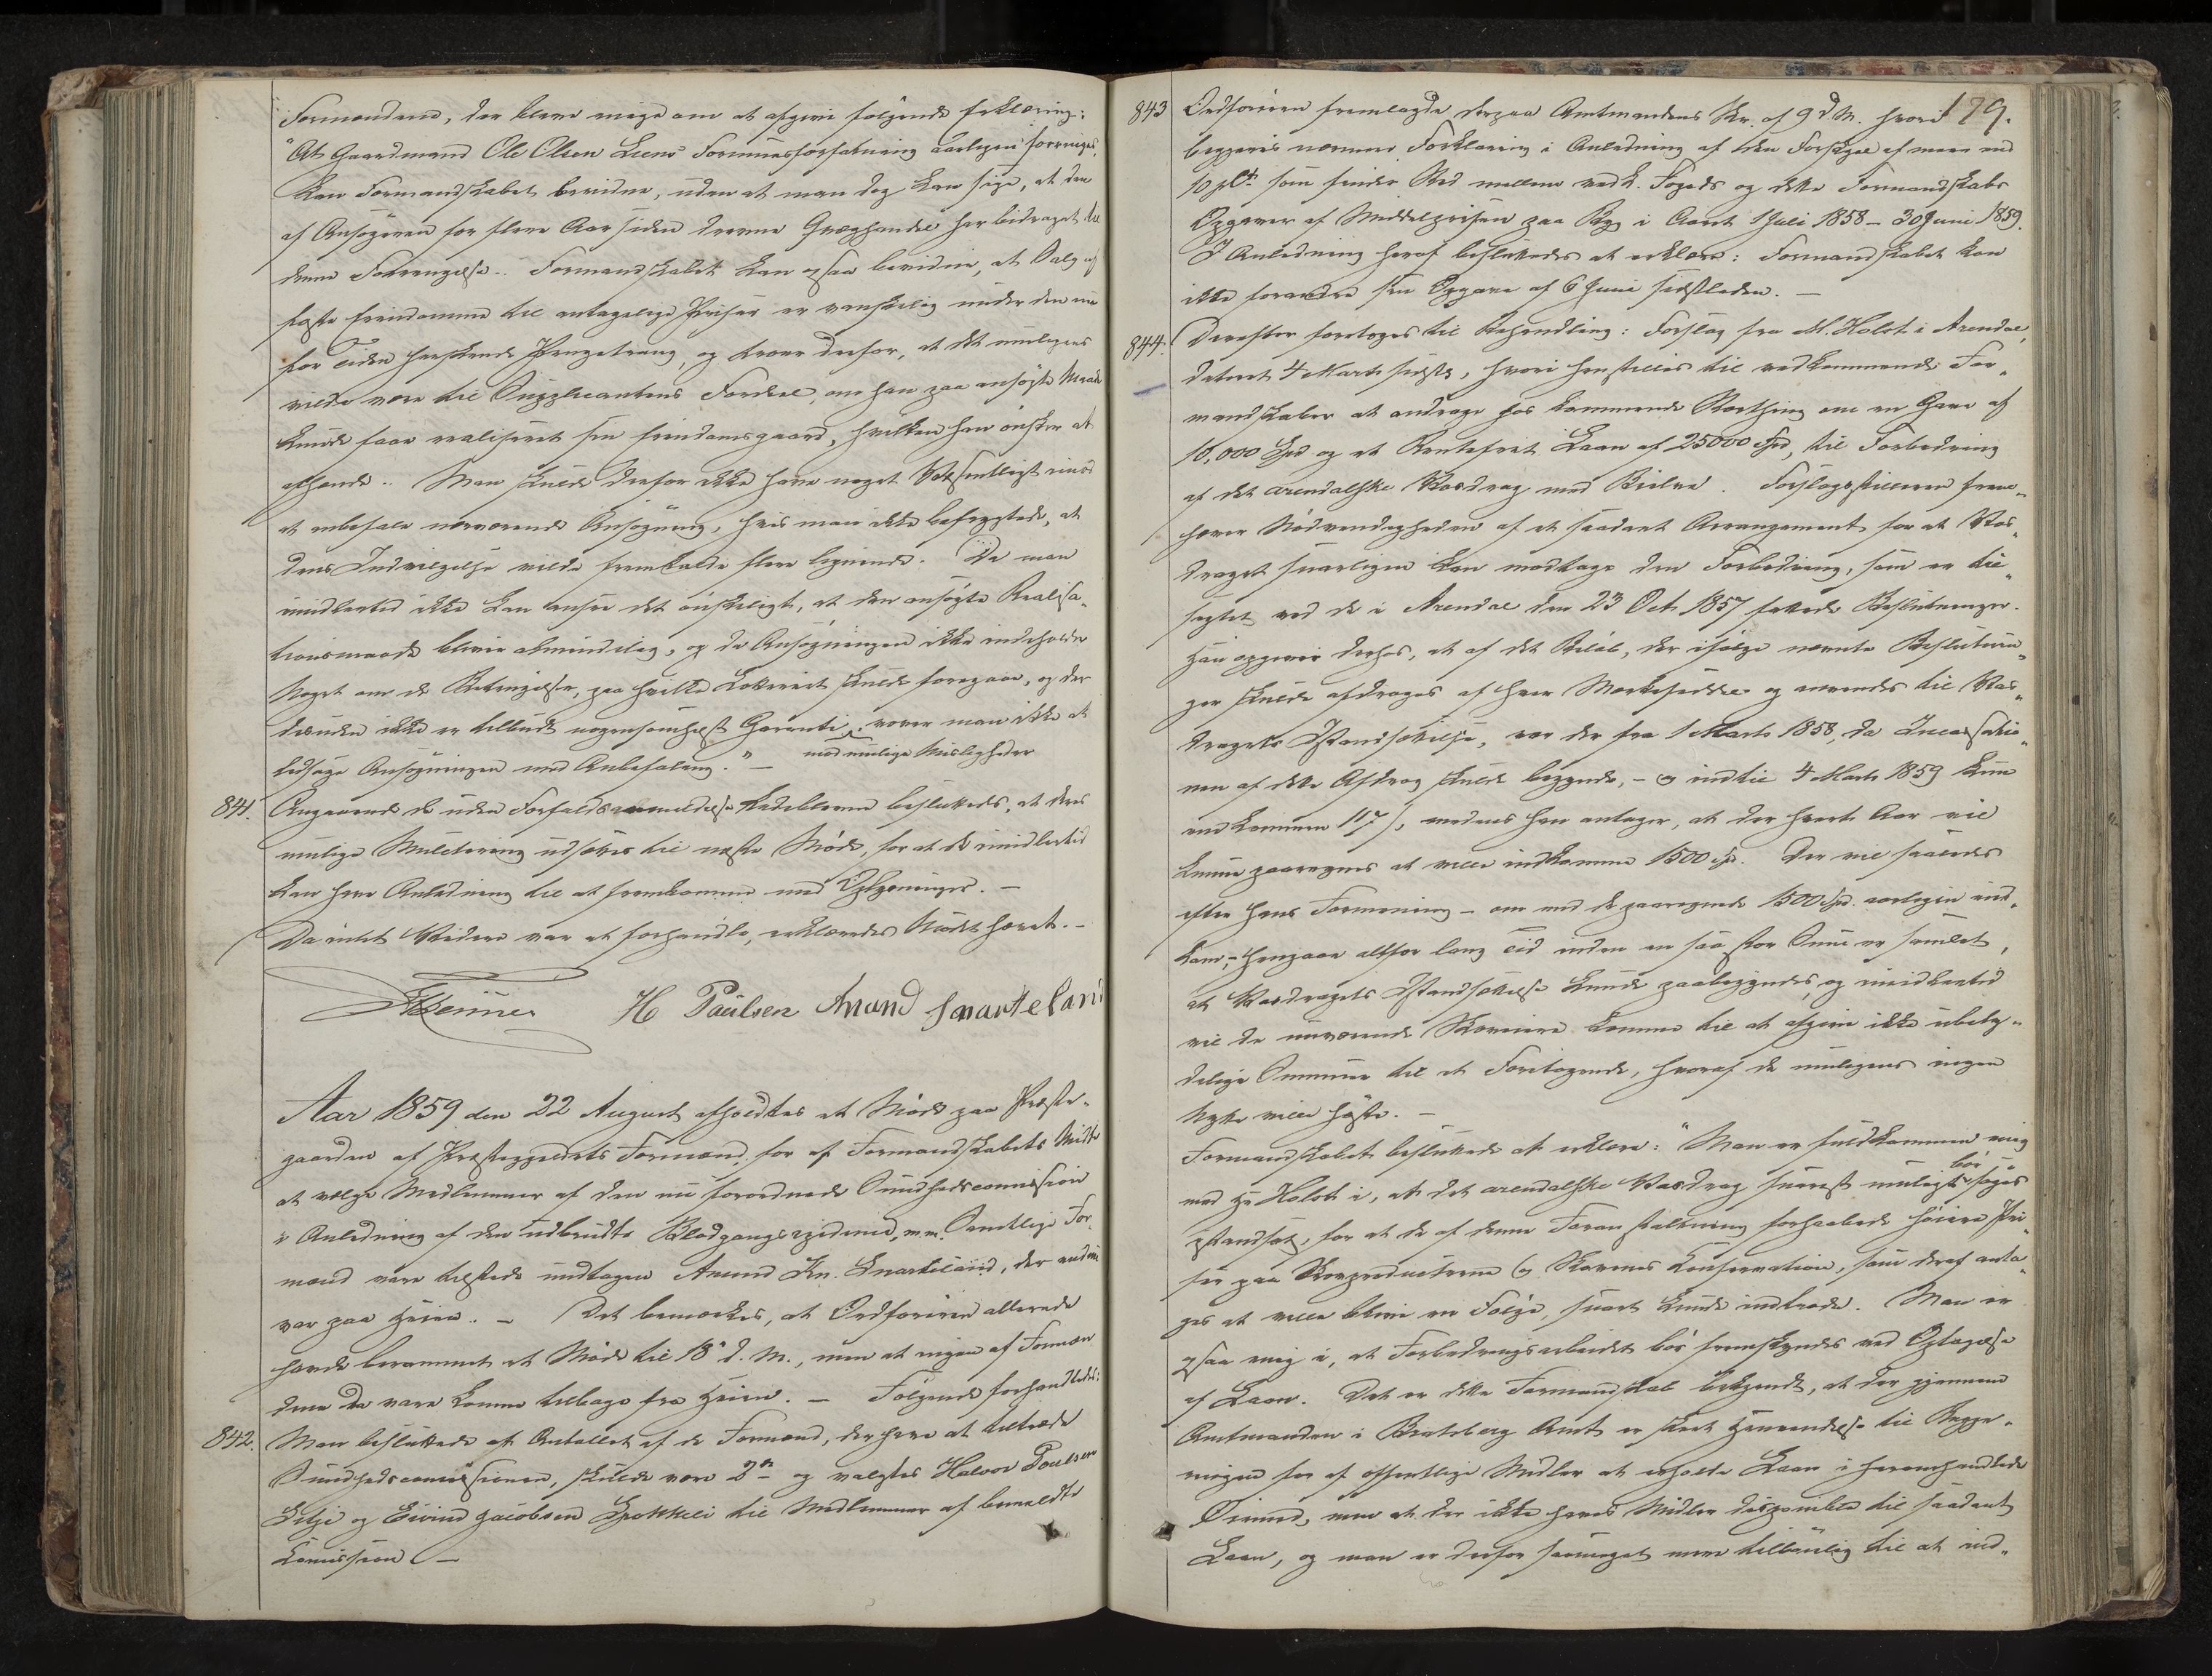 Formændene, der bleve enige om at afgive følgende Erklæring:
"At Gaardmand Ole Olsen Liens Formuesforfatning aarligen forringes,
kan Formandskabet bevidne, uden at man dog kan sige, at den
af Ansøgeren for flere Aar siden drevne Qvæghandel har bidraget til
denne Forringelse. Formandskabet kan ogsaa bevidne, at Salg af
faste Eiendomme til antagelige Priser er vanskelig under den nu
for Tiden herskende Pengetrang, og troer derfor, at det muligens
vilde være til Supplicantens Fordeel, om han paa ansøgte Maade
kunde faae realiseret sin Eiendomsgaard, hvilken han ønsker at
afhænde. Man skulde derfor ikke have noget Væsentligt imod
at anbefale nærværende Ansøgning, hvis man ikke befrygtede, at
dens Indvilgelse vilde fremkalde flere lignende. Da man
imidlertid ikke kan ansee det ønskeligt, at den ansøgte Realisa-
tionsmaade bliver almindelig, og da Ansøgningen ikke indeholder
Noget om de Betingelser, paa hvilke Lotteriet skulde foregaae, og der
desuden ikke er tilbudt nogensomhelst Garanti, vover man ikke at
mod mulige Misligheder
ledsage Ansøgningen med Anbefaling." —
841. Angaaende de uden Forfaldsanmeldelse Udeblevne besluttedes, at deres
mulige Mulctering udsættes til næste Møde, for at de imidlertid
kan have Anledning til at fremkomme med Oplysninger. —
Da intet Videre var at forhandle, erklæredes Mødet hævet. —
H Paulsen Anund Smarteland
Aar 1859 den 22 August afholdtes et Møde paa Præste-
gaarden af Præstegjeldets Formænd, for af Formandskabets Midte
at vælge Medlemmer af den nu forordnede Sundhedscomission
i Anledning af den udbrudte Blodgangsepidemi, m.m. Samtlige For-
mænd vare tilstede undtagen Anund Kn. Smarteland, der endnu
var paa Heien. — Det bemærkes, at Ordføreren allerede
havde berammet et Møde til 18de d. M., men at ingen af Formæn-
dene da vare komne tilbage fra Heien. — Følgende forhandledes:
842. Man besluttede at Antallet af de Formænd, der have at tiltræde
Sundhedscomissionen, skulde være 2de og valgtes Halvor Poulsen
Lilje og Eivind Jacobsen til Medlemmer af bemeldte
Comission —
179.
843 Ordføreren fremlagde derpaa Amtmandens Skr. af 9 d. M. hvori
begjæres nærmere Forklaring i Anledning af den Forskjel af mere end
10 pCt. som finder Sted mellem vedk. Fogeds og dette Formandskabs
Opgaver af Middelprisen paa Byg i Aaret 1 Juli 1858 — 30 Juni 1859.
I Anledning heraf besluttedes at erklære: Formandskabet kan
ikke forandre sin Opgave af 6 Juni sidstleden. —
844. Derefter foretoges til Behandling: Forslag fra M. Holst i Arendal,
dateret 4 Marts sidstl., hvori henstilles til vedkommende For-
mandskaber at andrage hos kommende Storthing om en Gave af
10,000 Spd og et Rentefrit Laan af 25000 Spd, til Forbedring
af det arendalske Vasdrag med Bielve. Forslagsstilleren frem-
hæver Nødvendigheden af et saadant Arrangement for at Vas-
draget snarligen kan modtage den Forbedring, som er til-
sigtet ved de i Arendal den 23 Oct 1857 fattede Beslutninger.
Han opgiver derhos, at af det Beløb, der ifølge nævnte Beslutnin-
ger skulde afdrages af hver Mærkeseddel og anvendes til Vas-
dragets Istandsættelse, var der fra 1 Marts 1858, da Incassatio-
nen af dette Afdrag skulde begynde, — og indtil 4 Marts 1859 kun
indkommen 117 , medens han antager, at der hvert Aar vil
kunne paaregnes at ville indkomme 1500 Spd. Der vil saaledes
efter hans Formening — om end de paaregnede 1500 Spd. aarligen ind-
kom, — hengaae altfor lang Tid inden en saa stor Sum er samlet,
at Vasdragets Istandsættelse kunde paabegyndes, og imidlertid
vil de nuværende Skoveiere komme til at afgive ikke ubety-
delige Summer til et Foretagende, hvoraf de muligens ingen
Nytte ville høste. —
Formandskabet besluttede at erklære: "Man er fuldkommen enig
med Hr Holst i, at det arendalske Vasdrag snarest muligt bør søges
istandsat, for at de af denne Foranstaltning forhaabede høiere Pri-
ser paa Skovproducterne og Skovenes Conservation, som deraf anta-
ges at ville blive en Følge, snart kunde indtræde. Man er
ogsaa enig i, at Forbedringsarbeidet bør fremskyndes ved Optagelse
af Laan. Det er dette Formandskab bekjendt, at der gjennem
Amtmanden i Bratsberg Amt er skeet Henvendelse til Regje-
ringen for af offentlige Midler at erholde Laan i heromhandlede
Øiemed, men at der ikke haves Midler disponible til saadant
Laan, og man er derfor saameget mere tilbøielig til at ind-